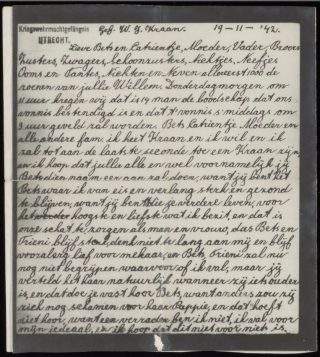 Kriegswehrmachtgefängnis Gef. W. G. Kraan. 19-11-'42.
UTRECHT.
Lieve Bets en Katrientje, Moeder, Vader, Broers
Zusters, Zwagers, Schoonzusters, Nichtjes, Neefjes
Ooms en Tantes, Nichten en Neven allereerst 1000 de
zoenen van jullie Willem. Donderdagmorgen om
11 uur kregen wij dat is 14 man de boodschap dat ons
vonnis bestendigd is en dat 't vonnis s'middags om
3 uur geveld zal worden. Bets, Katrientje, Moeder en
alle andere fam. ik heet Kraan en ik wil en ik
zal tot aan de laatste seconde toe een Kraan zijn
en ik hoop dat jullie alle en wel voornamelijk jij
Bets dien naam eer aan zal doen, want jij bent het
Bets waar ik van eis en verlang sterk en gezond
te blijven, want jij bent die je verdere leven, voor
het hoogste en liefste wat ik bezit, en dat is
onze schat te zorgen als man en vrouw, dus Bets en
Trieni blijf sterk, denk niet te lang aan mij en blijf
vooral erg lief voor mekaar, en Bets, Trieni zal nu
nog niet begrijpen waarvoor of ik val, maar jij
verteld het haar natuurlijk wanneer zij iets ouder
is, en dat doe je vast hoor Bets, want anders zou zij
zich nog schamen voor haar Pappie, en dat hoeft
niet hoor, want een verrader ben ik niet, ik val voor
mijn ideaal, en ik hoop dat dit niet voor niets is,